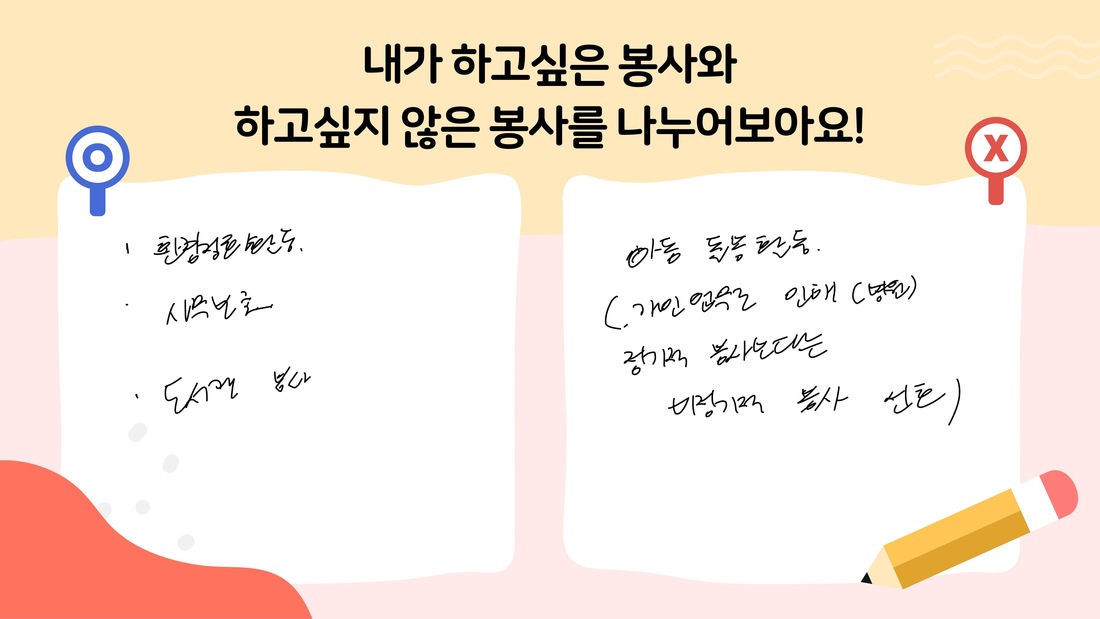 내가 하고싶은 봉사와
하고싶지 않은 봉사를 나누어보아요!
O
X
· 환경정화 활동.
· 식목보호
· 도서관 봉사
아동 돌봄 활동.
(. 개인 업무로 인해 (병원)
정기적 봉사보다는
비정기적 봉사 선호)